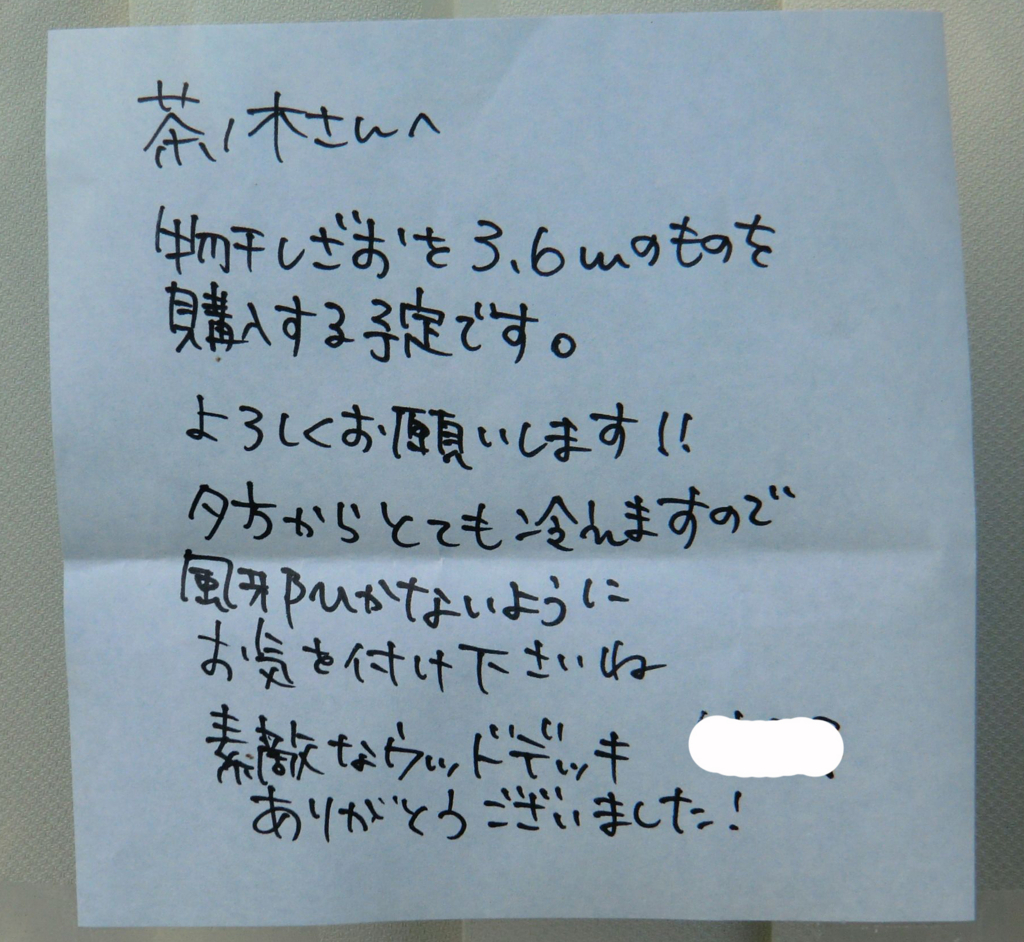 茶ノ木さんへ
物干しざおを3.6mのものを
購入する予定です。
よろしくお願いします!!
夕方からとても冷えますので
風邪ひかないように
お気を付け下さいね
素敵なウッドデッキ
ありがとうございました!